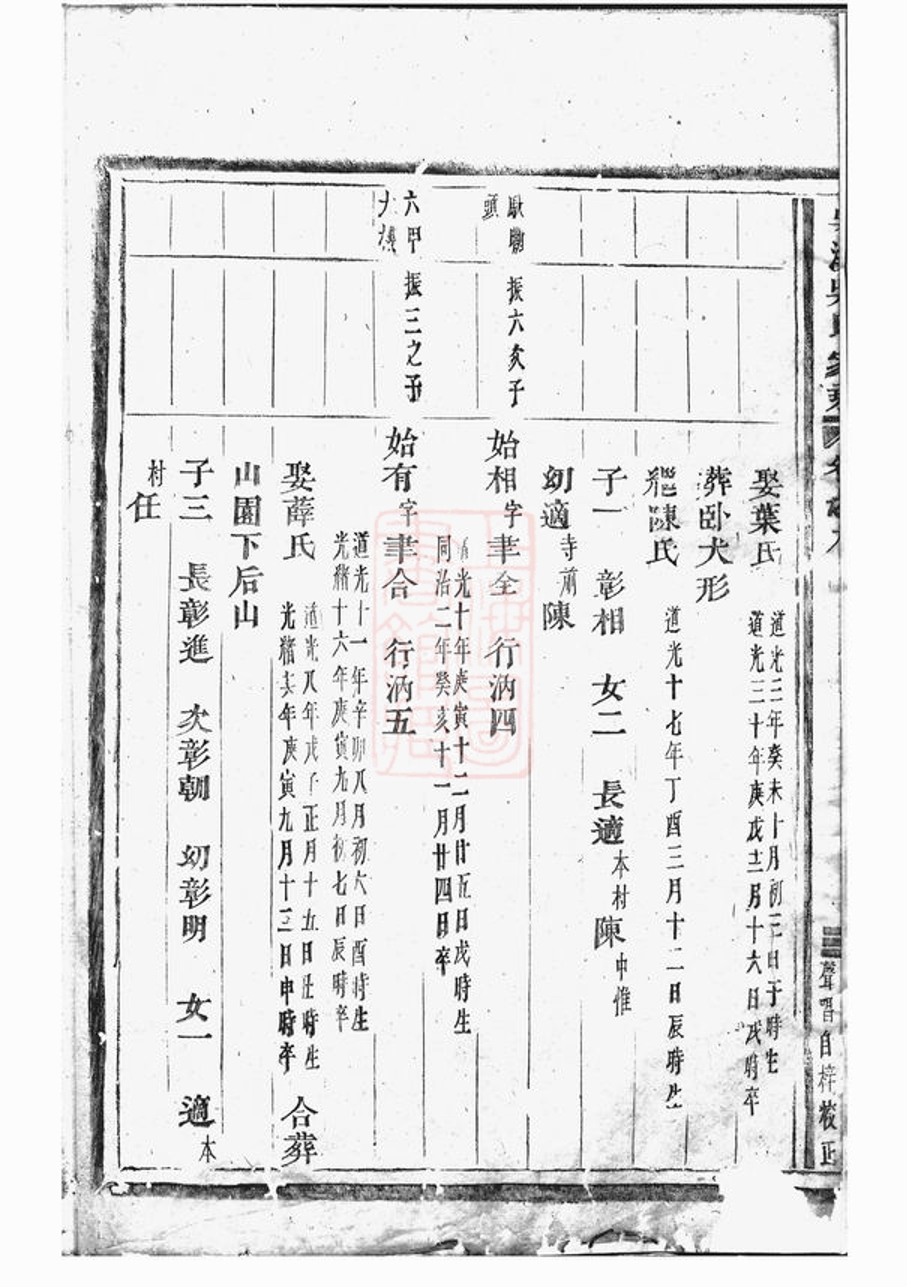 娶葉氏
道光三年癸未十月初三日子時生
道光三十年庚戌十二月十六日戌時卒
葬卧犬形
繼陳氏
道光十七年丁酉三月十二日辰時生
子一 彰相 女二 長適本村陳中惟
幼適寺前陳
頭
振六亥子
始相字聿全 行汭四
道光十年庚寅十二月廿五日戌時生
同治二年癸亥十一月廿四日卒
六甲
振三之子
始有字聿合 行汭五
道光十一年辛卯八月初六日酉時生
光緒十六年庚寅九月初七日辰時卒
娶薛氏
道光八年戊子正月十五日丑時生
光緒年庚寅九月十三日申時卒
合葬
山園下后山
子三 長彰進 次彰朝 幼彰明 女一 適本
村任
聲唱自梓校正